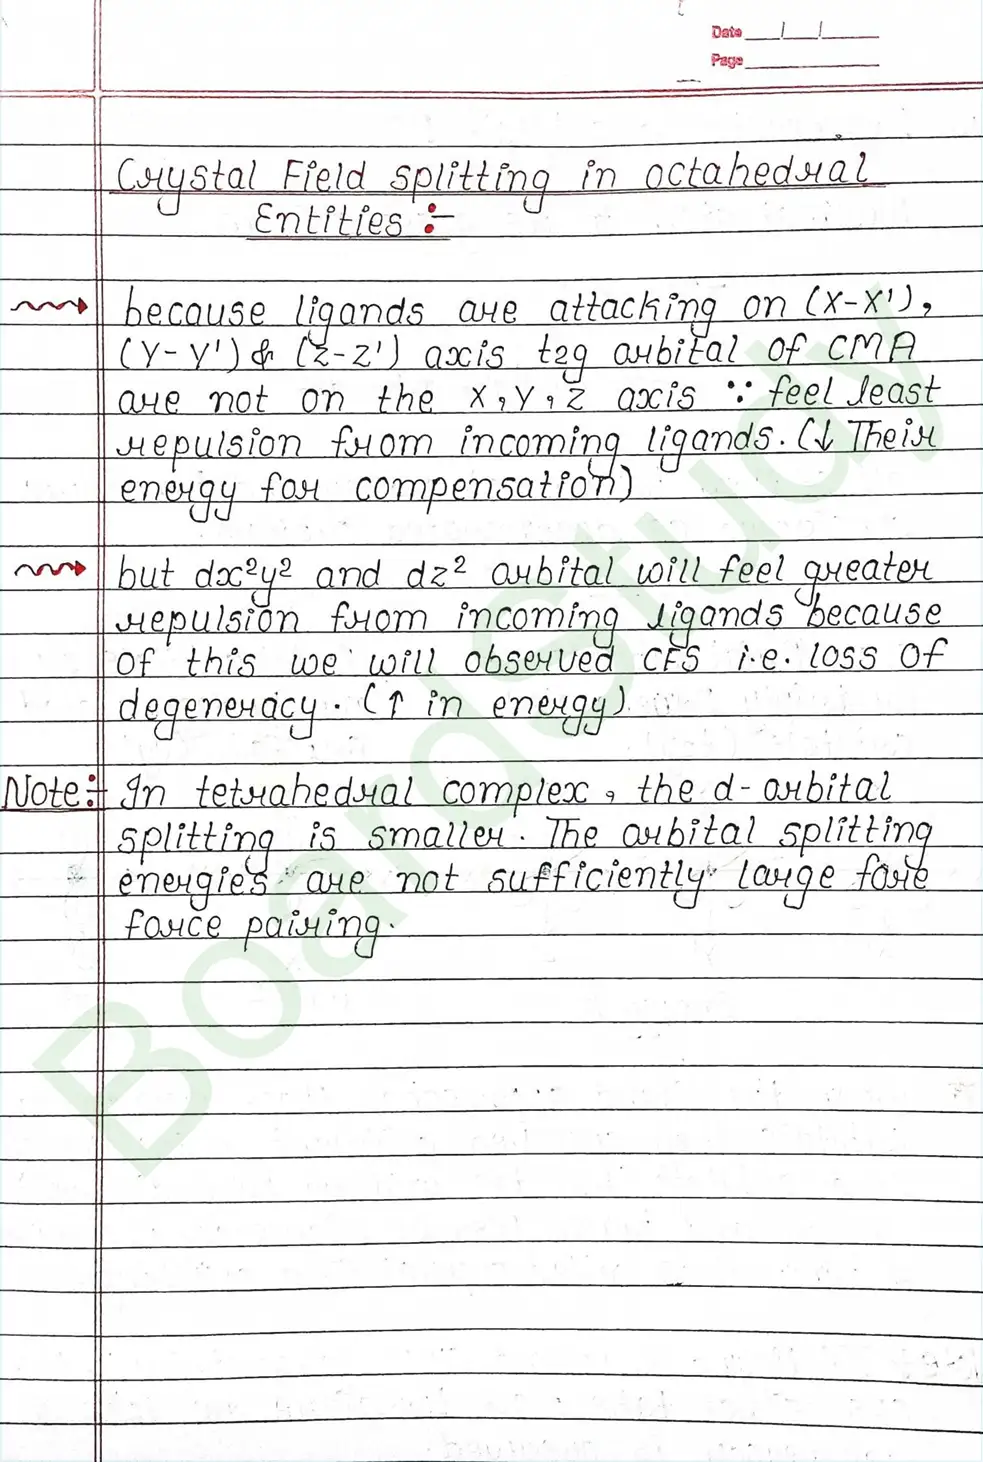 Date __/__/__
Page ______
Crystal Field splitting in octahedral
Entities :-
because ligands are attacking on (X-X'),
(Y-Y') & (Z-Z') axis t2g orbital of CMA
are not on the X, Y, Z axis ∵ feel least
repulsion from incoming ligands. (↓ Their
energy for compensation)
but dx²y² and dz² orbital will feel greater
repulsion from incoming ligands because
of this we will observed CFS i.e. loss of
degeneracy. (↑ in energy)
Note:- In tetrahedral complex, the d-orbital
splitting is smaller. The orbital splitting
energies are not sufficiently large fore
force pairing.
Boardstudy